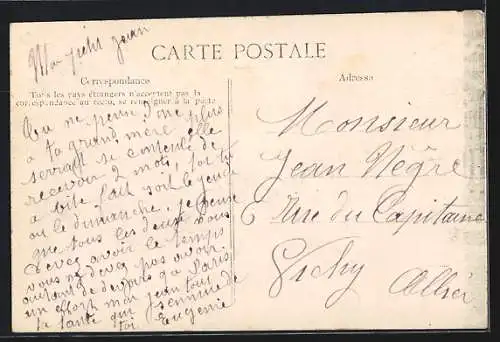 Mon petit Jean
CARTE POSTALE
Correspondance
Tous les pays étrangers n'acceptent pas la
correspondance au recto, se renseigner à la poste
Adresse
Tu ne penses donc plus
a ta grand mère elle
serrait si contente de
recevoir 2 mots, soi tu
a bite fait soit le jeudi
ou le dimanche. Je pense
que tous les deux vous
devez avoir le temps
vous ne devez pas avoir
autant de devoirs qu'a Paris
un effort mon Jean tous
ta tante qui
toi Eugenie
Monsieur
Jean Nègre
6 Rue du Capitaine
Vichy
Allier